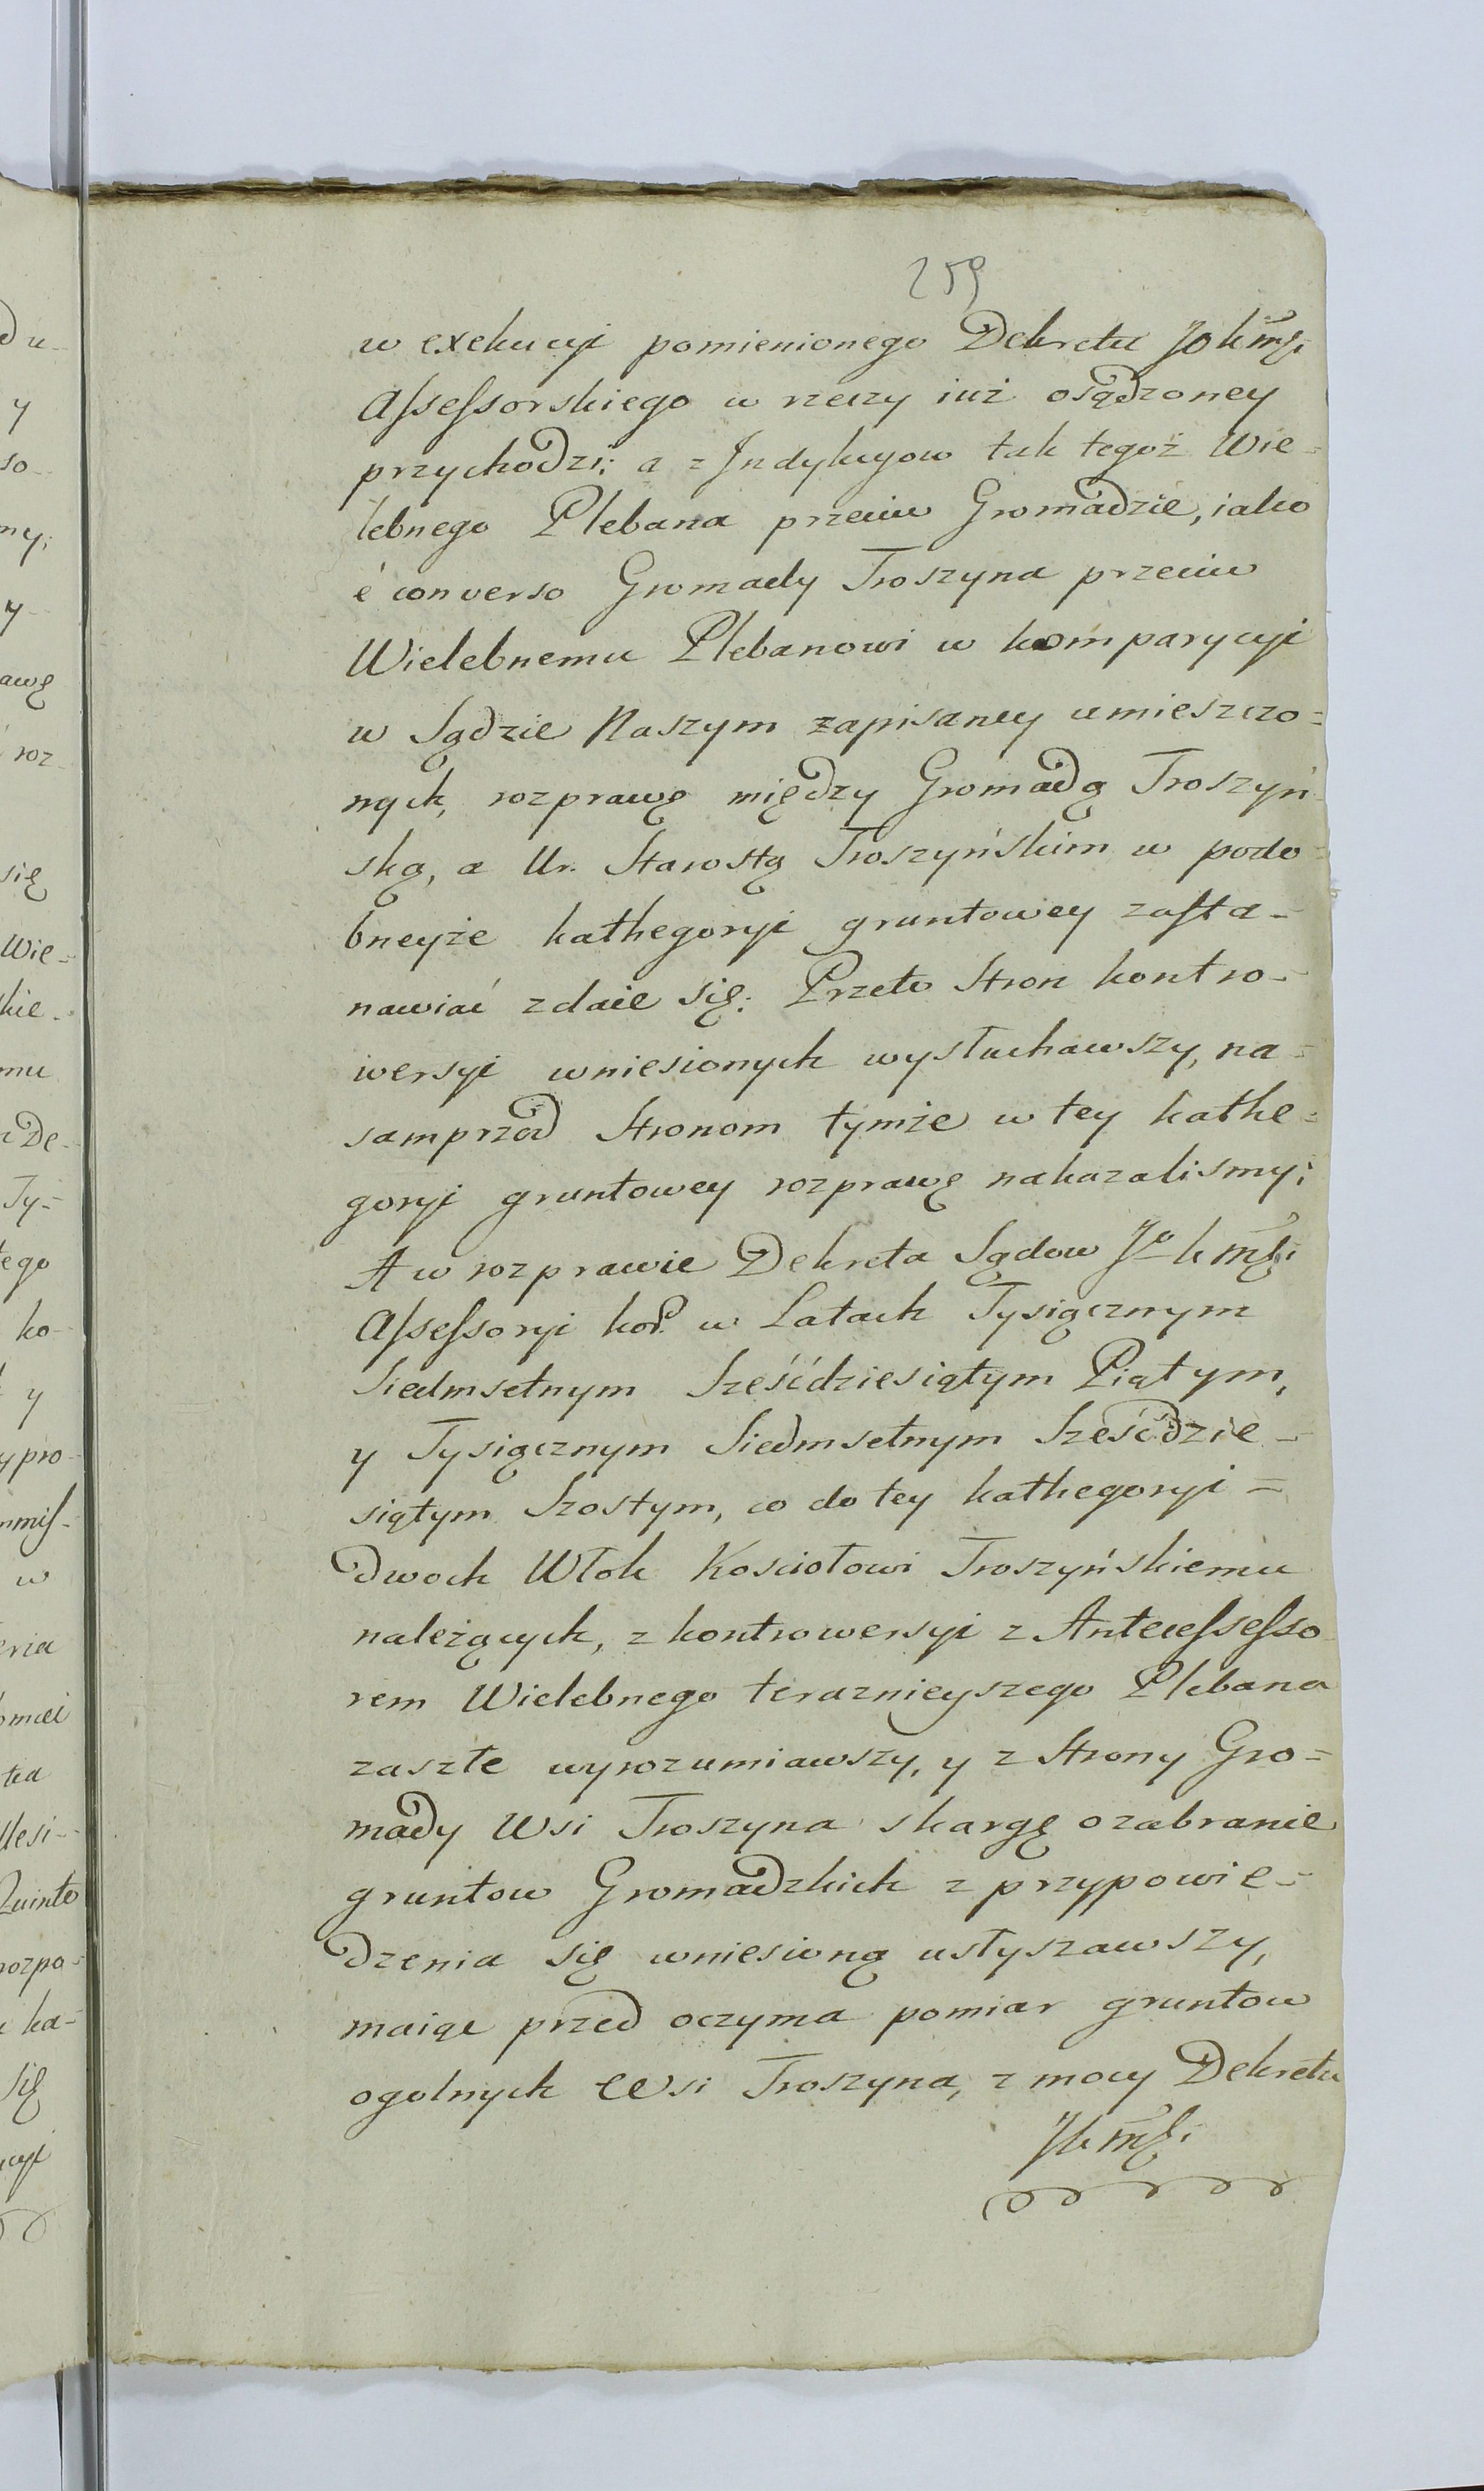 259
w exekucyi pomienionego Dekretu JoKmſci
Aſseſsorskiego w rzeczy iuż osądzoney
przychodzi; a z Indykcyow tak tegoż Wie=
lebnego Plebana przeciw Gromadzie, iako
é converso Gromady Troszyna przeciw
Wielebnemu Plebanowi w komparycyi
w Sądzie Naszym zapisaney umieszczo=
nych, rozprawę między Gromadą Troszyń
ską, a Ur. Starostą Troszyńskim w podo=
bneyże kathegoryi gruntowey zasta=
nawiać zdaie się. Przeto Stron kontro=
wersyi wniesionych wysłuchawszy, na=
samprzod Stronom tymże w tey kathe=
goryi gruntowey rozprawę nakazalismy;
A w rozprawie Dekreta Sądow Jo Kmſci
Aſseſsoryi kor. w Latach Tysiącznym
Siedmsetnym Sześćdziesiątym Piątym,
y Tysiącznym Siedmsetnym Sześćdzie=
siątym Szostym, co do tey kathegoryi=
dwoch Włok Kosciołowi Troszyńskiemu
należących, z kontrowersyi z Anteceſseſso
rem Wielebnego teraznieyszego Plebana
zaszłe wyrozumiawszy, y z Strony Gro=
mady Wsi Troszyna skargę o zabranie
gruntow Gromadzkich z przypowie=
dzenia się wniesioną usłyszawszy,
maiąc przed oczyma pomiar gruntow
ogolnych Wsi Troszyna, z mocy Dekretu
JKmſci
du
y
so
ny;
y
awę
roz
się
Wie=
kie
mu
De
Ty=
tego
ko
y
pro
w
eria
ta
Quinto
rozpo=
ka=
się
cyi